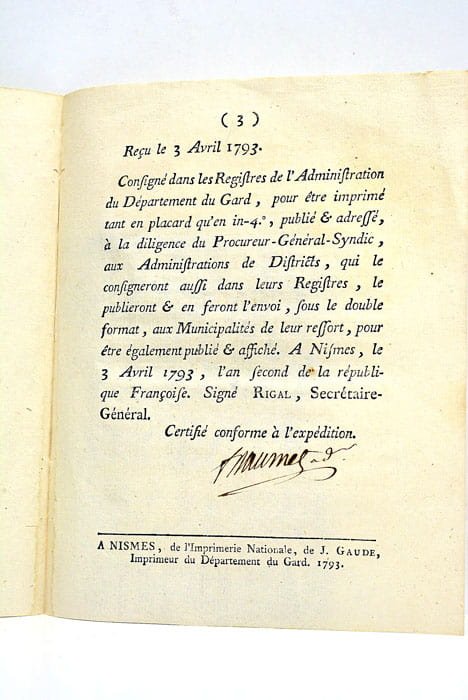 ( 3 )
Reçu le 3 Avril 1793.
Conſigné dans les Regiſtres de l'Adminiſtration
du Département du Gard, pour être imprimé
tant en placard qu'en in-4.°, publié & adreſſé,
à la diligence du Procureur-Général-Syndic,
aux Adminiſtrations de Diſtricts, qui le
conſigneront auſſi dans leurs Regiſtres, le
publieront & en feront l'envoi, ſous le double
format, aux Municipalités de leur reſſort, pour
être également publié & affiché. A Niſmes, le
3 Avril 1793, l'an ſecond de la républi-
que Françoiſe. Signé RIGAL, Secrétaire-
Général.
Certifié conforme à l'expédition.
A NISMES, de l'Imprimerie Nationale, de J. GAUDE,
Imprimeur du Département du Gard. 1793.